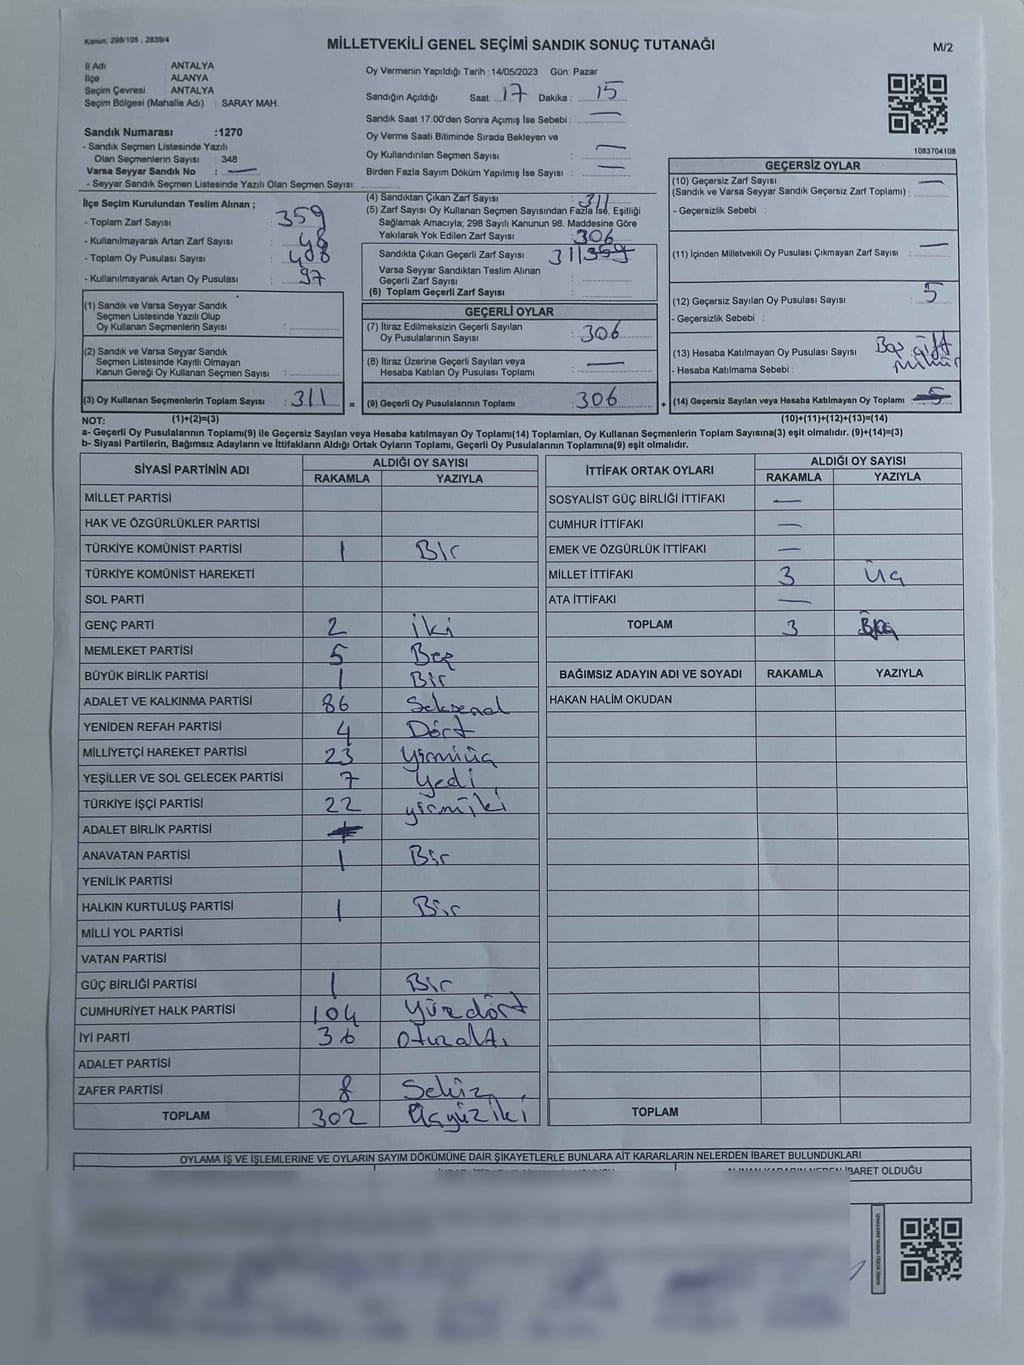 Kanun: 298/105 , 2839/4
MİLLETVEKİLİ GENEL SEÇİMİ SANDIK SONUÇ TUTANAĞI
M/2
İl Adı : ANTALYA
İlçe : ALANYA
Seçim Çevresi : ANTALYA
Seçim Bölgesi (Mahalle Adı) : SARAY MAH.
Oy Vermenin Yapıldığı Tarih : 14/05/2023 Gün: Pazar
Sandığın Açıldığı Saat: 17 Dakika : 15
Sandık Saat 17:00'den Sonra Açımış İse Sebebi : —
Oy Verme Saati Bitiminde Sırada Bekleyen ve
Oy Kullandırılan Seçmen Sayısı : —
Birden Fazla Sayım Döküm Yapılmış İse Sayısı : —
1083704108
Sandık Numarası :1270
- Sandık Seçmen Listesinde Yazılı
Olan Seçmenlerin Sayısı : 348
Varsa Seyyar Sandık No : —
- Seyyar Sandık Seçmen Listesinde Yazılı Olan Seçmen Sayısı:
İlçe Seçim Kurulundan Teslim Alınan ;
- Toplam Zarf Sayısı : 359
- Kullanılmayarak Artan Zarf Sayısı : 48
- Toplam Oy Pusulası Sayısı : 408
- Kullanılmayarak Artan Oy Pusulası : 97
(1) Sandık ve Varsa Seyyar Sandık
Seçmen Listesinde Yazılı Olup
Oy Kullanan Seçmenlerin Sayısı :
(2) Sandık ve Varsa Seyyar Sandık
Seçmen Listesinde Kayıtlı Olmayan
Kanun Gereği Oy Kullanan Seçmen Sayısı :
(3) Oy Kullanan Seçmenlerin Toplam Sayısı : 311 =
(4) Sandıktan Çıkan Zarf Sayısı : 311
(5) Zarf Sayısı Oy Kullanan Seçmen Sayısından Fazla İse, Eşitliği
Sağlamak Amacıyla; 298 Sayılı Kanunun 98. Maddesine Göre
Yakılarak Yok Edilen Zarf Sayısı : 306
Sandıkta Çıkan Geçerli Zarf Sayısı : 311 359
Varsa Seyyar Sandıktan Teslim Alınan
Geçerli Zarf Sayısı :
(6) Toplam Geçerli Zarf Sayısı :
GEÇERLİ OYLAR
(7) İtiraz Edilmeksizin Geçerli Sayılan
Oy Pusulalarının Sayısı : 306
(8) İtiraz Üzerine Geçerli Sayılan veya
Hesaba Katılan Oy Pusulası Toplamı : —
(9) Geçerli Oy Pusulalarının Toplamı : 306 +
GEÇERSİZ OYLAR
(10) Geçersiz Zarf Sayısı
(Sandık ve Varsa Seyyar Sandık Geçersiz Zarf Toplamı) : —
- Geçersizlik Sebebi :
(11) İçinden Milletvekili Oy Pusulası Çıkmayan Zarf Sayısı : —
(12) Geçersiz Sayılan Oy Pusulası Sayısı : 5
- Geçersizlik Sebebi :
(13) Hesaba Katılmayan Oy Pusulası Sayısı :
- Hesaba Katılmama Sebebi : çift mühür
(14) Geçersiz Sayılan veya Hesaba Katılmayan Oy Toplamı : 5
NOT: (1)+(2)=(3) (10)+(11)+(12)+(13)=(14)
a- Geçerli Oy Pusulalarının Toplamı(9) ile Geçersiz Sayılan veya Hesaba katılmayan Oy Toplamı(14) Toplamları, Oy Kullanan Seçmenlerin Toplam Sayısına(3) eşit olmalıdır. (9)+(14)=(3)
b- Siyasi Partilerin, Bağımsız Adayların ve İttifakların Aldığı Ortak Oyların Toplamı, Geçerli Oy Pusulalarının Toplamına(9) eşit olmalıdır.
SİYASİ PARTİNİN ADI ALDIĞI OY SAYISI
RAKAMLA YAZIYLA
MİLLET PARTİSİ
HAK VE ÖZGÜRLÜKLER PARTİSİ
TÜRKİYE KOMÜNİST PARTİSİ 1 Bir
TÜRKİYE KOMÜNİST HAREKETİ
SOL PARTİ
GENÇ PARTİ 2 iki
MEMLEKET PARTİSİ 5 Beş
BÜYÜK BİRLİK PARTİSİ 1 Bir
ADALET VE KALKINMA PARTİSİ 86 Seksenal
YENİDEN REFAH PARTİSİ 4 Dört
MİLLİYETÇİ HAREKET PARTİSİ 23 yirmiüç
YEŞİLLER VE SOL GELECEK PARTİSİ 7 yedi
TÜRKİYE İŞÇİ PARTİSİ 22 yirmiiki
ADALET BİRLİK PARTİSİ
ANAVATAN PARTİSİ 1 Bir
YENİLİK PARTİSİ
HALKIN KURTULUŞ PARTİSİ 1 Bir
MİLLİ YOL PARTİSİ
VATAN PARTİSİ
GÜÇ BİRLİĞİ PARTİSİ 1 Bir
CUMHURİYET HALK PARTİSİ 104 Yüzdört
İYİ PARTİ 36 Otuzaltı
ADALET PARTİSİ
ZAFER PARTİSİ 8 Sekiz
TOPLAM 302 üçyüziki
İTTİFAK ORTAK OYLARI ALDIĞI OY SAYISI
RAKAMLA YAZIYLA
SOSYALİST GÜÇ BİRLİĞİ İTTİFAKI —
CUMHUR İTTİFAKI —
EMEK VE ÖZGÜRLÜK İTTİFAKI —
MİLLET İTTİFAKI 3 üç
ATA İTTİFAKI —
TOPLAM 3
BAĞIMSIZ ADAYIN ADI VE SOYADI RAKAMLA YAZIYLA
HAKAN HALİM OKUDAN
TOPLAM
OYLAMA İŞ VE İŞLEMLERİNE VE OYLARIN SAYIM DÖKÜMÜNE DAİR ŞİKAYETLERLE BUNLARA AİT KARARLARIN NELERDEN İBARET BULUNDUKLARI
ALINAN KARARIN NEDEN İBARET OLDUĞU